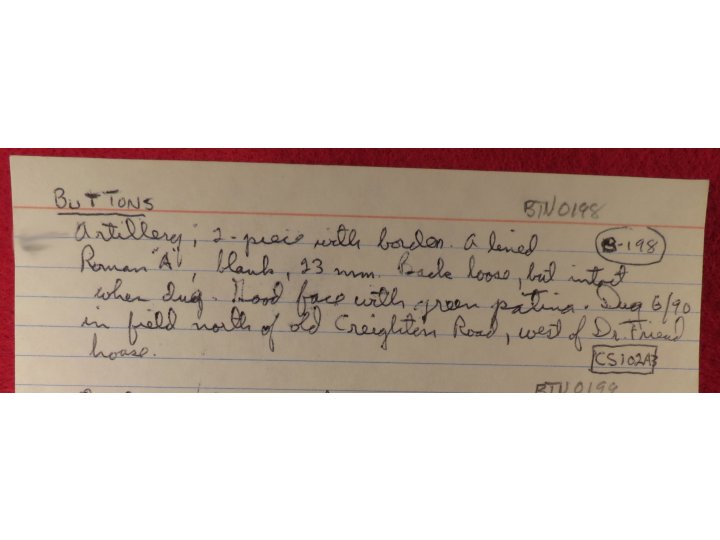 BUTTONS BTN0198
Artillery; 2-piece with border. A lined B-198
Roman "A", blank, 23 mm. Back loose, but intact
when dug. Good face with green patina. Dug 6/90
in field north of old Creighton Road, west of Dr. Friend
house. CS102A3
BTN0199